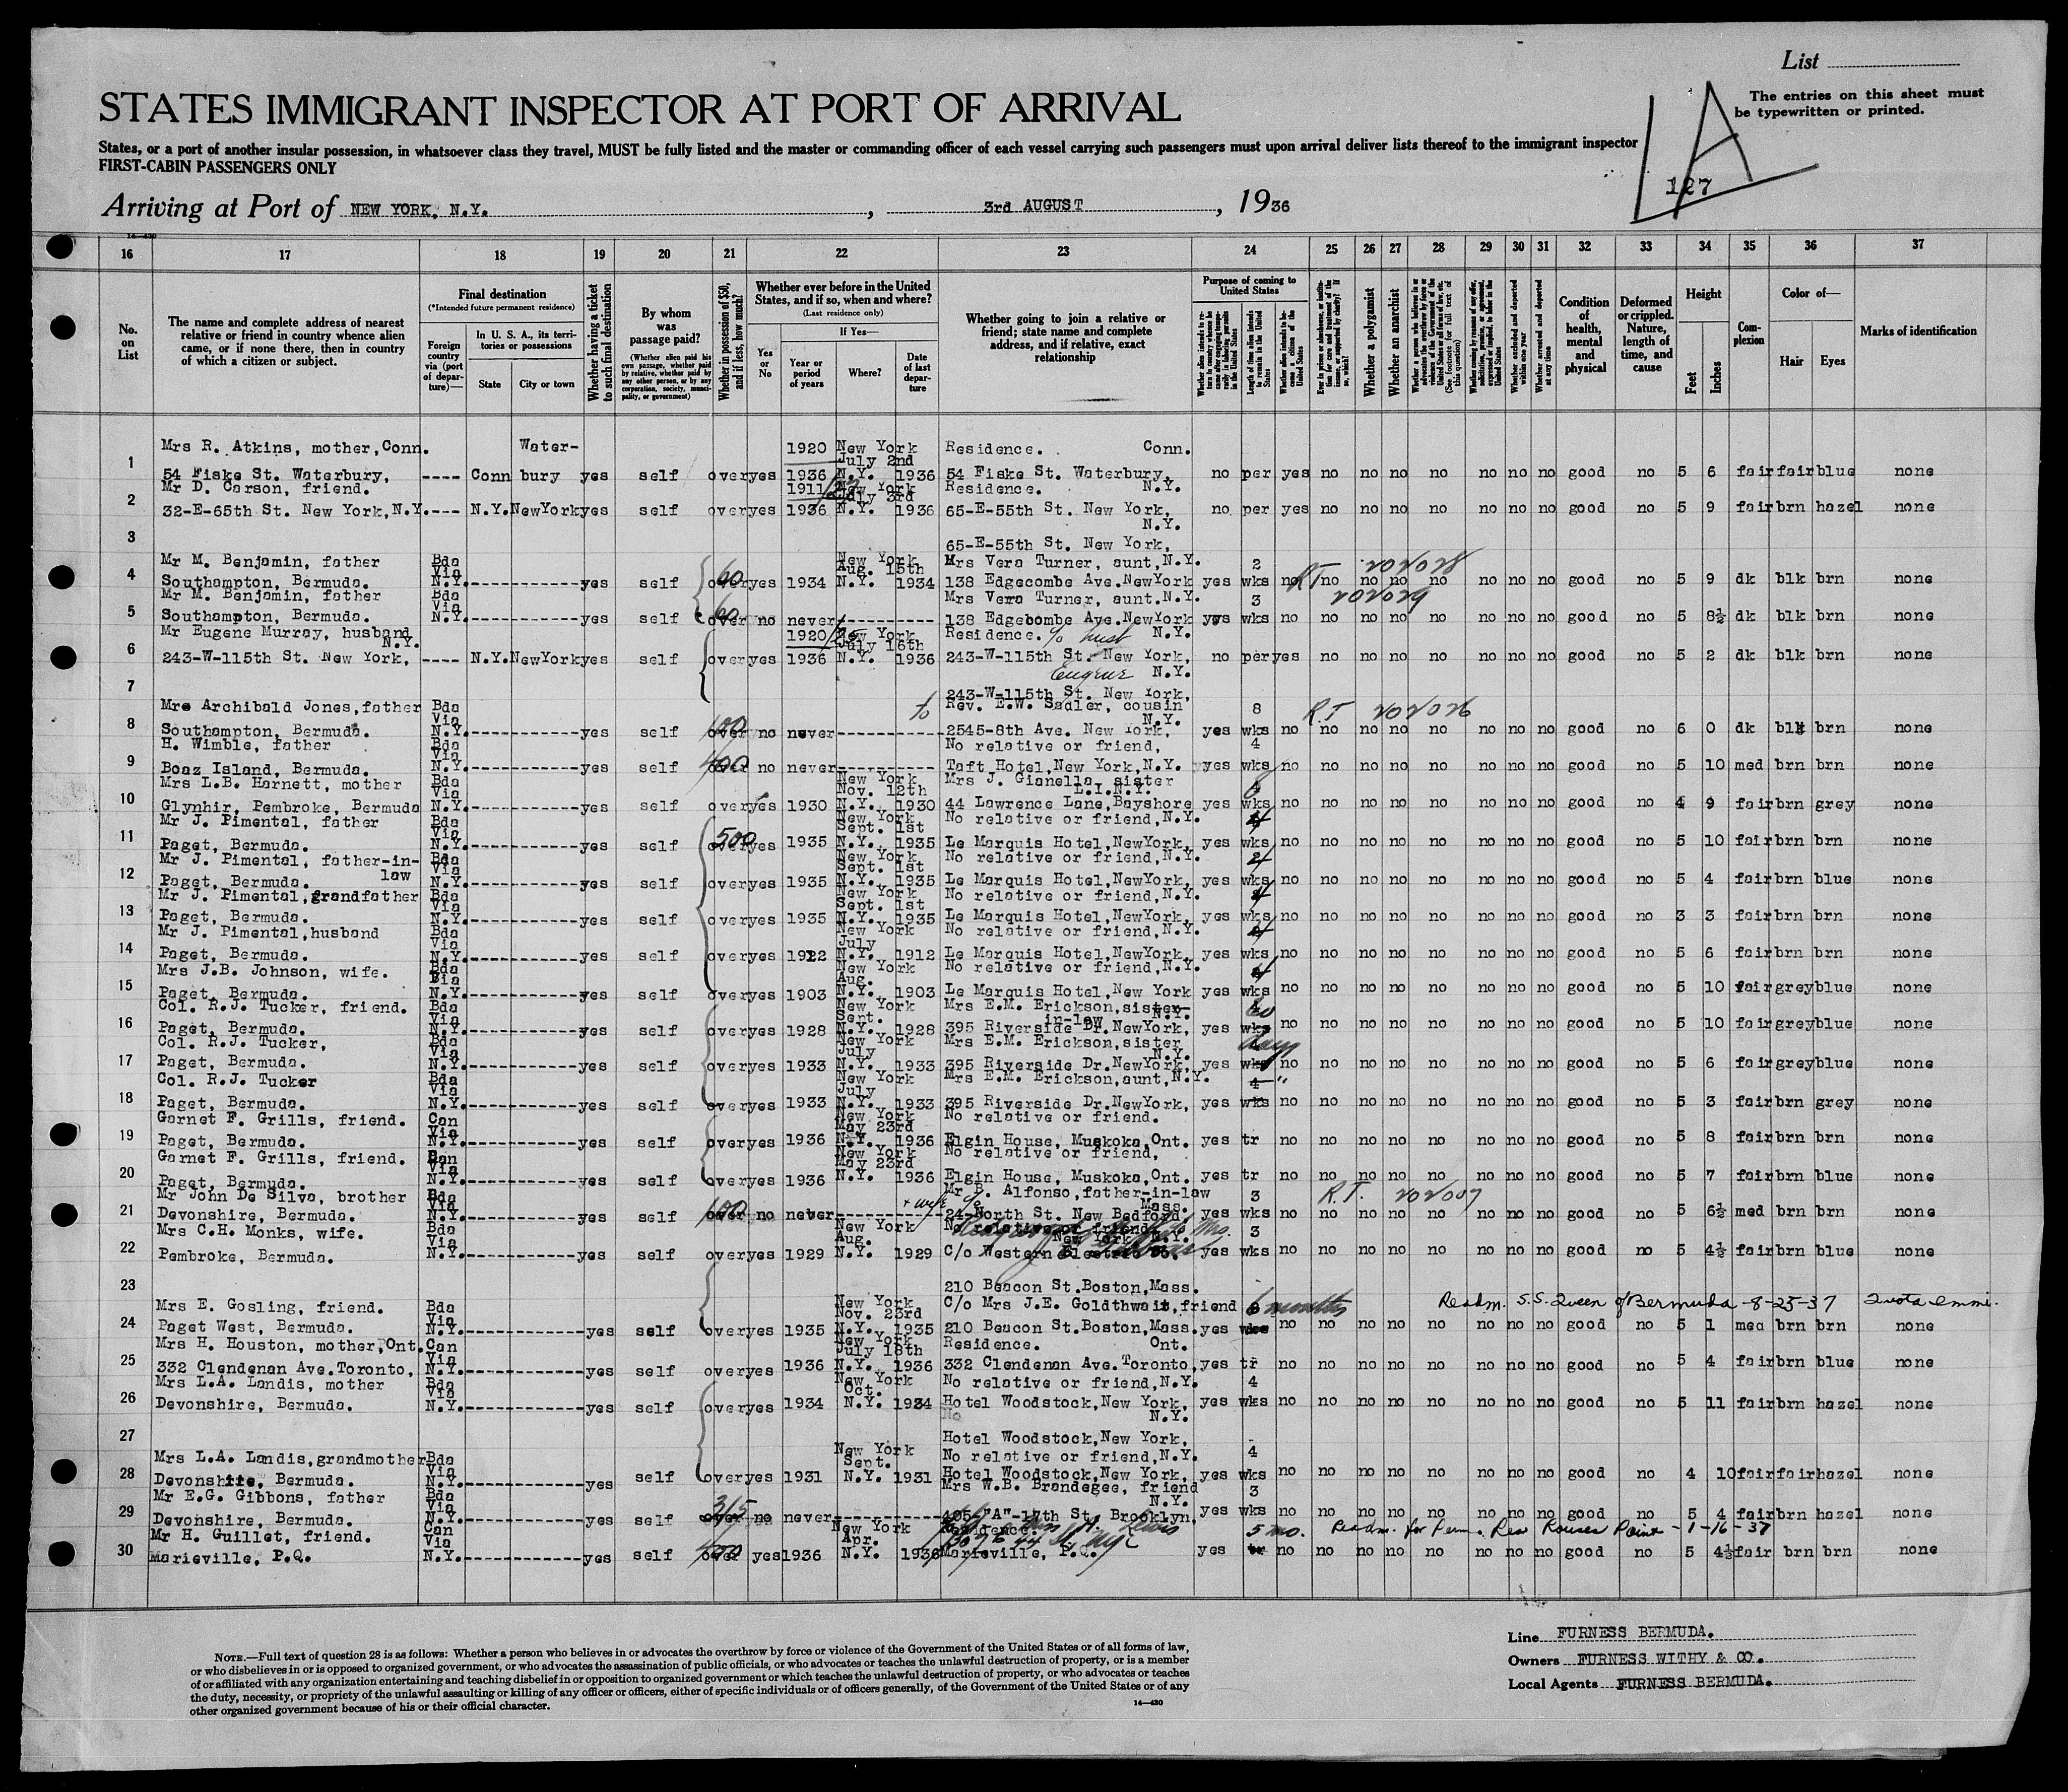 List
The entries on this sheet must
be typewritten or printed.
1A
127
STATES IMMIGRANT INSPECTOR AT PORT OF ARRIVAL
States, or a port of another insular possession, in whatsoever class they travel, MUST be fully listed and the master or commanding officer of each vessel carrying such passengers must upon arrival deliver lists thereof to the immigrant inspector
FIRST-CABIN PASSENGERS ONLY
Arriving at Port of NEW YORK, N.Y. , 3rd AUGUST , 1936
14-430
16 17 18 19 20 21 22 23 24 25 26 27 28 29 30 31 32 33 34 35 36 37
No. on List
The name and complete address of nearest relative or friend in country whence alien came, or if none there, then in country of which a citizen or subject.
Final destination
(*Intended future permanent residence)
Foreign country via (port of departure)—
In U. S. A., its territories or possessions
State City or town
Whether having a ticket to such final destination
By whom was passage paid?
(Whether alien paid his own passage, whether paid by relative, whether paid by any other person, or by any corporation, society, municipality, or government)
Whether in possession of $50, and if less, how much?
Whether ever before in the United States, and if so, when and where?
(Last residence only)
Yes or No
If Yes—
Year or period of years Where? Date of last departure
Whether going to join a relative or friend; state name and complete address, and if relative, exact relationship
Purpose of coming to United States
Length of time alien intends to remain in the United States
Whether alien intends to become a citizen of the United States
Whether a polygamist
Whether an anarchist
(See footnote for full text of this question)
Whether excluded and deported within one year
Whether arrested and deported at any time
Condition of health, mental and physical
Deformed or crippled. Nature, length of time, and cause
Height
Feet Inches
Complexion
Color of—
Hair Eyes
Marks of identification
1 Mrs R. Atkins, mother, Conn. Water- 1920 New York Residence. Conn.
July 2nd
54 Fiske St. Waterbury, ---- Conn bury yes self over yes 1936 N.Y. 1936 54 Fiske St. Waterbury, no per yes no no no no no no no good no 5 6 fair fair blue none
2 Mr D. Carson, friend. 1911 New York Residence. N.Y.
July 3rd
32-E-65th St. New York, N.Y. --- N.Y. NewYork yes self over yes 1936 N.Y. 1936 65-E-55th St. New York, no per yes no no no no no no no good no 5 9 fair brn hazel none
N.Y.
3 65-E-55th St. New York,
4 Mr M. Benjamin, father Bda New York Mrs Vera Turner, aunt, N.Y. 2
Via 60 Aug. 15th RT 202028
Southampton, Bermuda. N.Y. yes self over yes 1934 N.Y. 1934 138 Edgecombe Ave. NewYork yes wks no no no no no no no no good no 5 9 dk blk brn none
5 Mr M. Benjamin, father Bda Mrs Vera Turner, aunt. N.Y. 3
Via 60 202029
Southampton, Bermuda. N.Y. yes self over no never 138 Edgebombe Ave. NewYork yes wks no no no no no no no no good no 5 8½ dk blk brn none
6 Mr Eugene Murray, husband 1920 New York Residence. N.Y.
N.Y. July 16th
243-W-115th St. New York, ---- N.Y. NewYork yes self over yes 1936 N.Y. 1936 243-W-115th St. New York, no per yes no no no no no no no good no 5 2 dk blk brn none
Eugene N.Y.
7 243-W-115th St. New York,
8 Mrs Archibald Jones, father Bda to Rev. E.W. Sadler, cousin 8 R.T 202026
Via 100 N.Y.
Southampton, Bermuda. N.Y. yes self over no never 2545-8th Ave. New York, yes wks no no no no no no no no good no 6 0 dk blk brn none
9 H. Wimble, father Bda No relative or friend, 4
Via 400
Boaz Island, Bermuda. N.Y. yes self over no never Taft Hotel, New York, N.Y. yes wks no no no no no no no no good no 5 10 med brn brn none
10 Mrs L.B. Harnett, mother Bda New York Mrs J. Gianella, sister
Via Nov. 12th L.I.N.Y.
Glynhir, Pembroke, Bermuda N.Y. yes self over yes 1930 N.Y. 1930 44 Lawrence Lane, Bayshore yes wks no no no no no no no no good no 4 9 fair brn grey none
11 Mr J. Pimental, father Bda New York No relative or friend, N.Y.
Via 500 Sept. 1st
Paget, Bermuda. N.Y. yes self over yes 1935 N.Y. 1935 Le Marquis Hotel, NewYork, yes wks no no no no no no no no good no 5 10 fair brn brn none
12 Mr J. Pimental, father-in-law Bda New York No relative or friend, N.Y.
Via Sept. 1st
Paget, Bermuda. N.Y. yes self over yes 1935 N.Y. 1935 Le Marquis Hotel, NewYork, yes wks no no no no no no no no good no 5 4 fair brn blue none
13 Mr J. Pimental, grandfather Bda New York No relative or friend, N.Y.
Via Sept. 1st
Paget, Bermuda. N.Y. yes self over yes 1935 N.Y. 1935 Le Marquis Hotel, NewYork, yes wks no no no no no no no no good no 3 3 fair brn brn none
14 Mr J. Pimental, husband Bda New York No relative or friend, N.Y.
Via July
Paget, Bermuda. N.Y. yes self over yes 1922 N.Y. 1912 Le Marquis Hotel, NewYork, yes wks no no no no no no no no good no 5 6 fair brn brn none
15 Mrs J.B. Johnson, wife. Bda New York No relative or friend, N.Y.
Via Aug.
Paget, Bermuda. N.Y. yes self over yes 1903 N.Y. 1903 Le Marquis Hotel, New York yes wks no no no no no no no no good no 5 10 fair grey blue none
16 Col. R.J. Tucker, friend. Bda New York Mrs E.M. Erickson, sister- 60
Via Sept. in-law N.Y.
Paget, Bermuda. N.Y. yes self over yes 1928 N.Y. 1928 395 Riverside Dr. NewYork, yes wks no no no no no no no no good no 5 10 fair grey blue none
17 Col. R.J. Tucker, Bda New York Mrs E.M. Erickson, sister days
Via July N.Y.
Paget, Bermuda. N.Y. yes self over yes 1933 N.Y. 1933 395 Riverside Dr. NewYork, yes wks no no no no no no no no good no 5 6 fair grey blue none
18 Col. R.J. Tucker Bda New York Mrs E.M. Erickson, aunt, N.Y. 4 "
Via July
Paget, Bermuda. N.Y. yes self over yes 1933 N.Y. 1933 395 Riverside Dr. NewYork, yes wks no no no no no no no no good no 5 3 fair brn grey none
19 Garnet F. Grills, friend. Can New York No relative or friend.
Via May 23rd
Paget, Bermuda. N.Y. yes self over yes 1936 N.Y. 1936 Elgin House, Muskoka, Ont. yes tr no no no no no no no no good no 5 8 fair brn brn none
20 Garnet F. Grills, friend. Can New York No relative or friend,
Via May 23rd
Paget, Bermuda. N.Y. yes self over yes 1936 N.Y. 1936 Elgin House, Muskoka, Ont. yes tr no no no no no no no no good no 5 7 fair brn blue none
21 Mr John De Silva, brother Bda Mr B. Alfonso, father-in-law 3 R.T. 202007
Via 100 + wife c/o Mass.
Devonshire, Bermuda. N.Y. yes self over no never 24-North St. New Bedford, yes wks no no no no no no no no good no 5 6½ med brn brn none
22 Mrs C.H. Monks, wife. Bda New York No relative or friend Mrs. 3
Via Aug. New York N.Y.
Pembroke, Bermuda. N.Y. yes self over yes 1929 N.Y. 1929 C/o Western Electric yes wks no no no no no no no no good no 5 4½ fair brn blue none
23 210 Beacon St. Boston, Mass.
24 Mrs E. Gosling, friend. Bda New York C/o Mrs J.E. Goldthwait, friend 6 months Readm. S.S. Queen of Bermuda - 8-25-37 Quota immi.
Via Nov. 23rd
Paget West, Bermuda. N.Y. yes self over yes 1935 N.Y. 1935 210 Beacon St. Boston, Mass. yes wks no no no no no no no no good no 5 1 med brn brn none
25 Mrs H. Houston, mother, Ont. Can New York Residence. Ont.
Via July 18th
332 Clendenan Ave. Toronto, N.Y. yes self over yes 1936 N.Y. 1936 332 Clendenan Ave. Toronto, yes tr no no no no no no no no good no 5 4 fair brn blue none
26 Mrs L.A. Landis, mother Bda New York No relative or friend, N.Y. 4
Via Oct.
Devonshire, Bermuda. N.Y. yes self over yes 1934 N.Y. 1934 Hotel Woodstock, New York, yes wks no no no no no no no no good no 5 11 fair brn hazel none
No N.Y.
27 Hotel Woodstock, New York,
28 Mrs L.A. Landis, grandmother Bda New York No relative or friend, N.Y. 4
Via Sept.
Devonshire, Bermuda. N.Y. yes self over yes 1931 N.Y. 1931 Hotel Woodstock, New York, yes wks no no no no no no no no good no 4 10 fair fair hazel none
29 Mr E.G. Gibbons, father Bda Mrs W.B. Brandegee, friend 3
Via 315 N.Y.
Devonshire, Bermuda. N.Y. yes self over no never 405-"A"-17th St. Brooklyn, yes wks no no no no no no no no good no 5 4 fair brn hazel none
30 Mr H. Guillet, friend. Can New York Residence. 5 mo. Readm. for Perm. Res Rouses Point - 1-16-37
Via 400 Apr.
Marieville, P.Q. N.Y. yes self over yes 1936 N.Y. 1936 Marieville, P.Q. yes tr no no no no no no no no good no 5 4½ fair brn brn none
NOTE.—Full text of question 28 is as follows: Whether a person who believes in or advocates the overthrow by force or violence of the Government of the United States or of all forms of law,
or who disbelieves in or is opposed to organized government, or who advocates the assassination of public officials, or who advocates or teaches the unlawful destruction of property, or is a member
of or affiliated with any organization entertaining and teaching disbelief in or opposition to organized government or which teaches the unlawful destruction of property, or who advocates or teaches
the duty, necessity, or propriety of the unlawful assaulting or killing of any officer or officers, either of specific individuals or of officers generally, of the Government of the United States or of any
other organized government because of his or their official character.
14-430
Line FURNESS BERMUDA.
Owners FURNESS WITHY & CO.
Local Agents FURNESS BERMUDA.